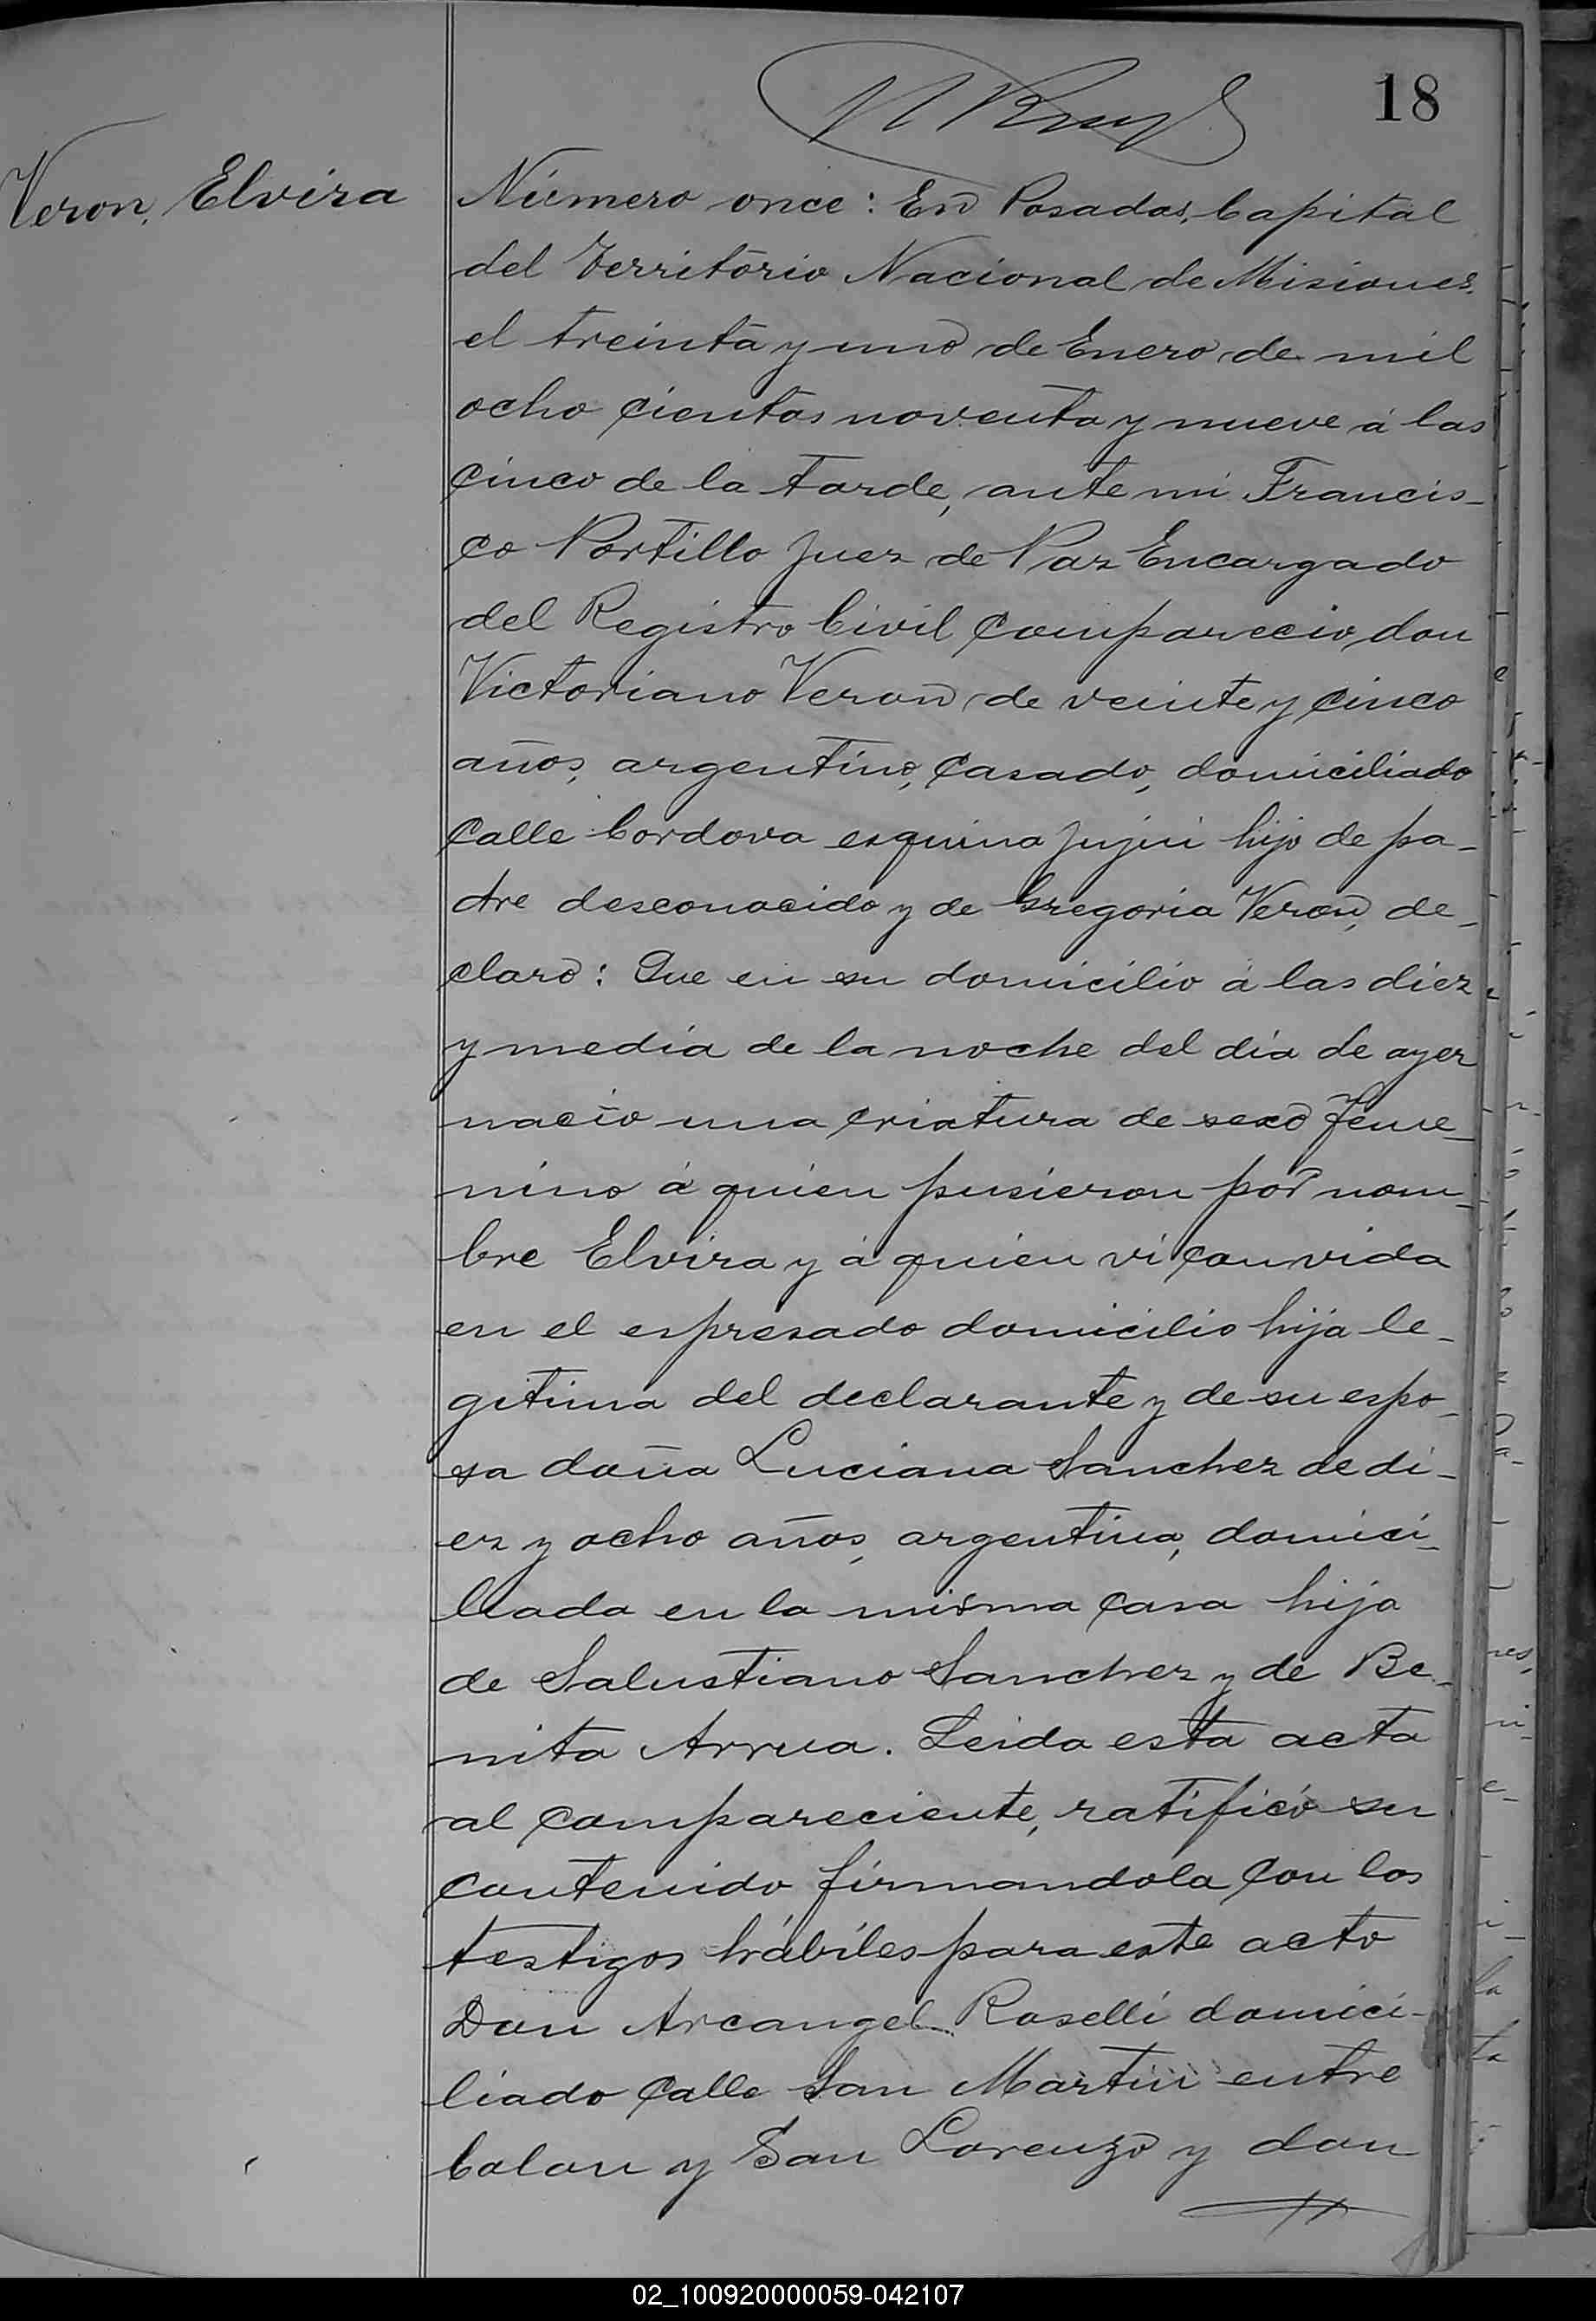 18
Veron, Elvira
Número once: En Posadas, Capital
del Territorio Nacional de Misiones,
el treinta y uno de Enero de mil
ocho cientos noventa y nueve á las
cinco de la tarde, ante mi Francis-
co Portillo Juez de Paz Encargado
del Registro Civil compareció don
Victoriano Veron de veinte y cinco
años, argentino, casado, domiciliado
calle Cordova esquina Jujui hijo de pa-
dre desconocido y de Gregoria Veron, de-
claró: Que en su domicilio á las diez
y media de la noche del día de ayer
nació una criatura de sexo feme-
nino á quien pusieron por nom-
bre Elvira y á quien vi con vida
en el espresado domicilio hija le-
gitima del declarante y de su espo-
sa doña Luciana Sanchez de di-
ez y ocho años, argentina, domici-
liada en la misma casa hija
de Salustiano Sanchez y de Be-
nita Arrua. Leida esta acta
al compareciente, ratificó su
contenido firmandola con los
testigos hábiles para este acto
Don Arcangel Roselli domici-
liado calle San Martin entre
Colon y San Lorenzo y don
02_100920000059-042107